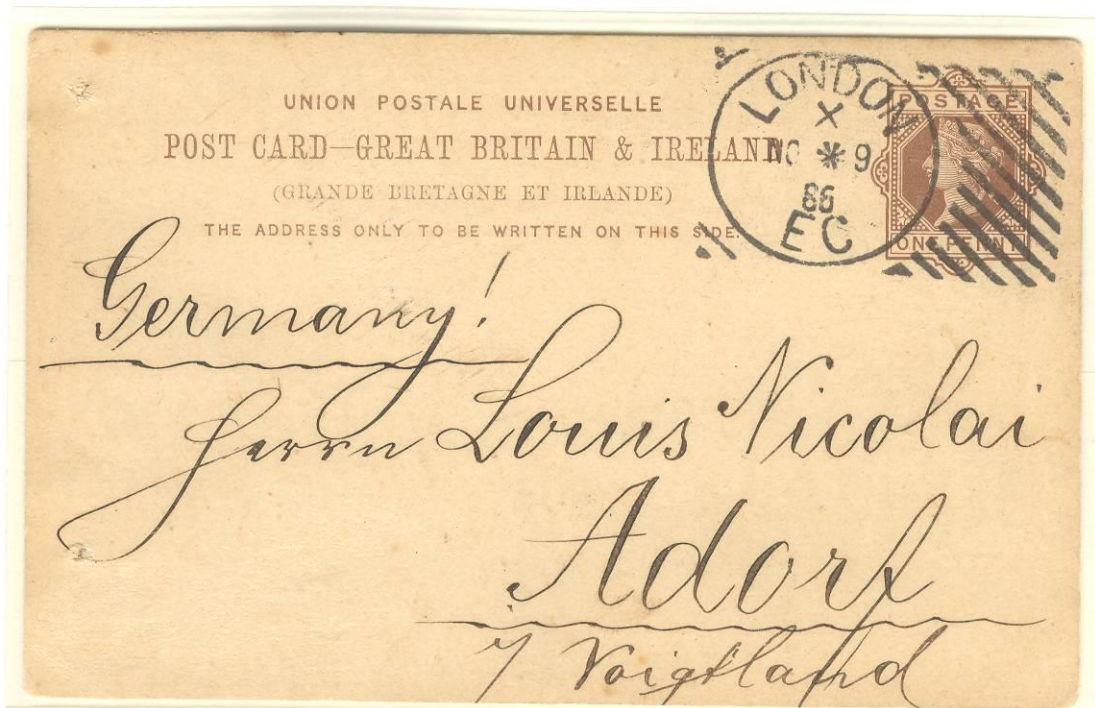 UNION POSTALE UNIVERSELLE
POST CARD—GREAT BRITAIN & IRELAND
(GRANDE BRETAGNE ET IRLANDE)
THE ADDRESS ONLY TO BE WRITTEN ON THIS SIDE.
LONDON
X
NO * 9
86
EC
POSTAGE
ONE PENNY
Germany!
Herrn Louis Nicolai
Adorf
i/ Voigtland